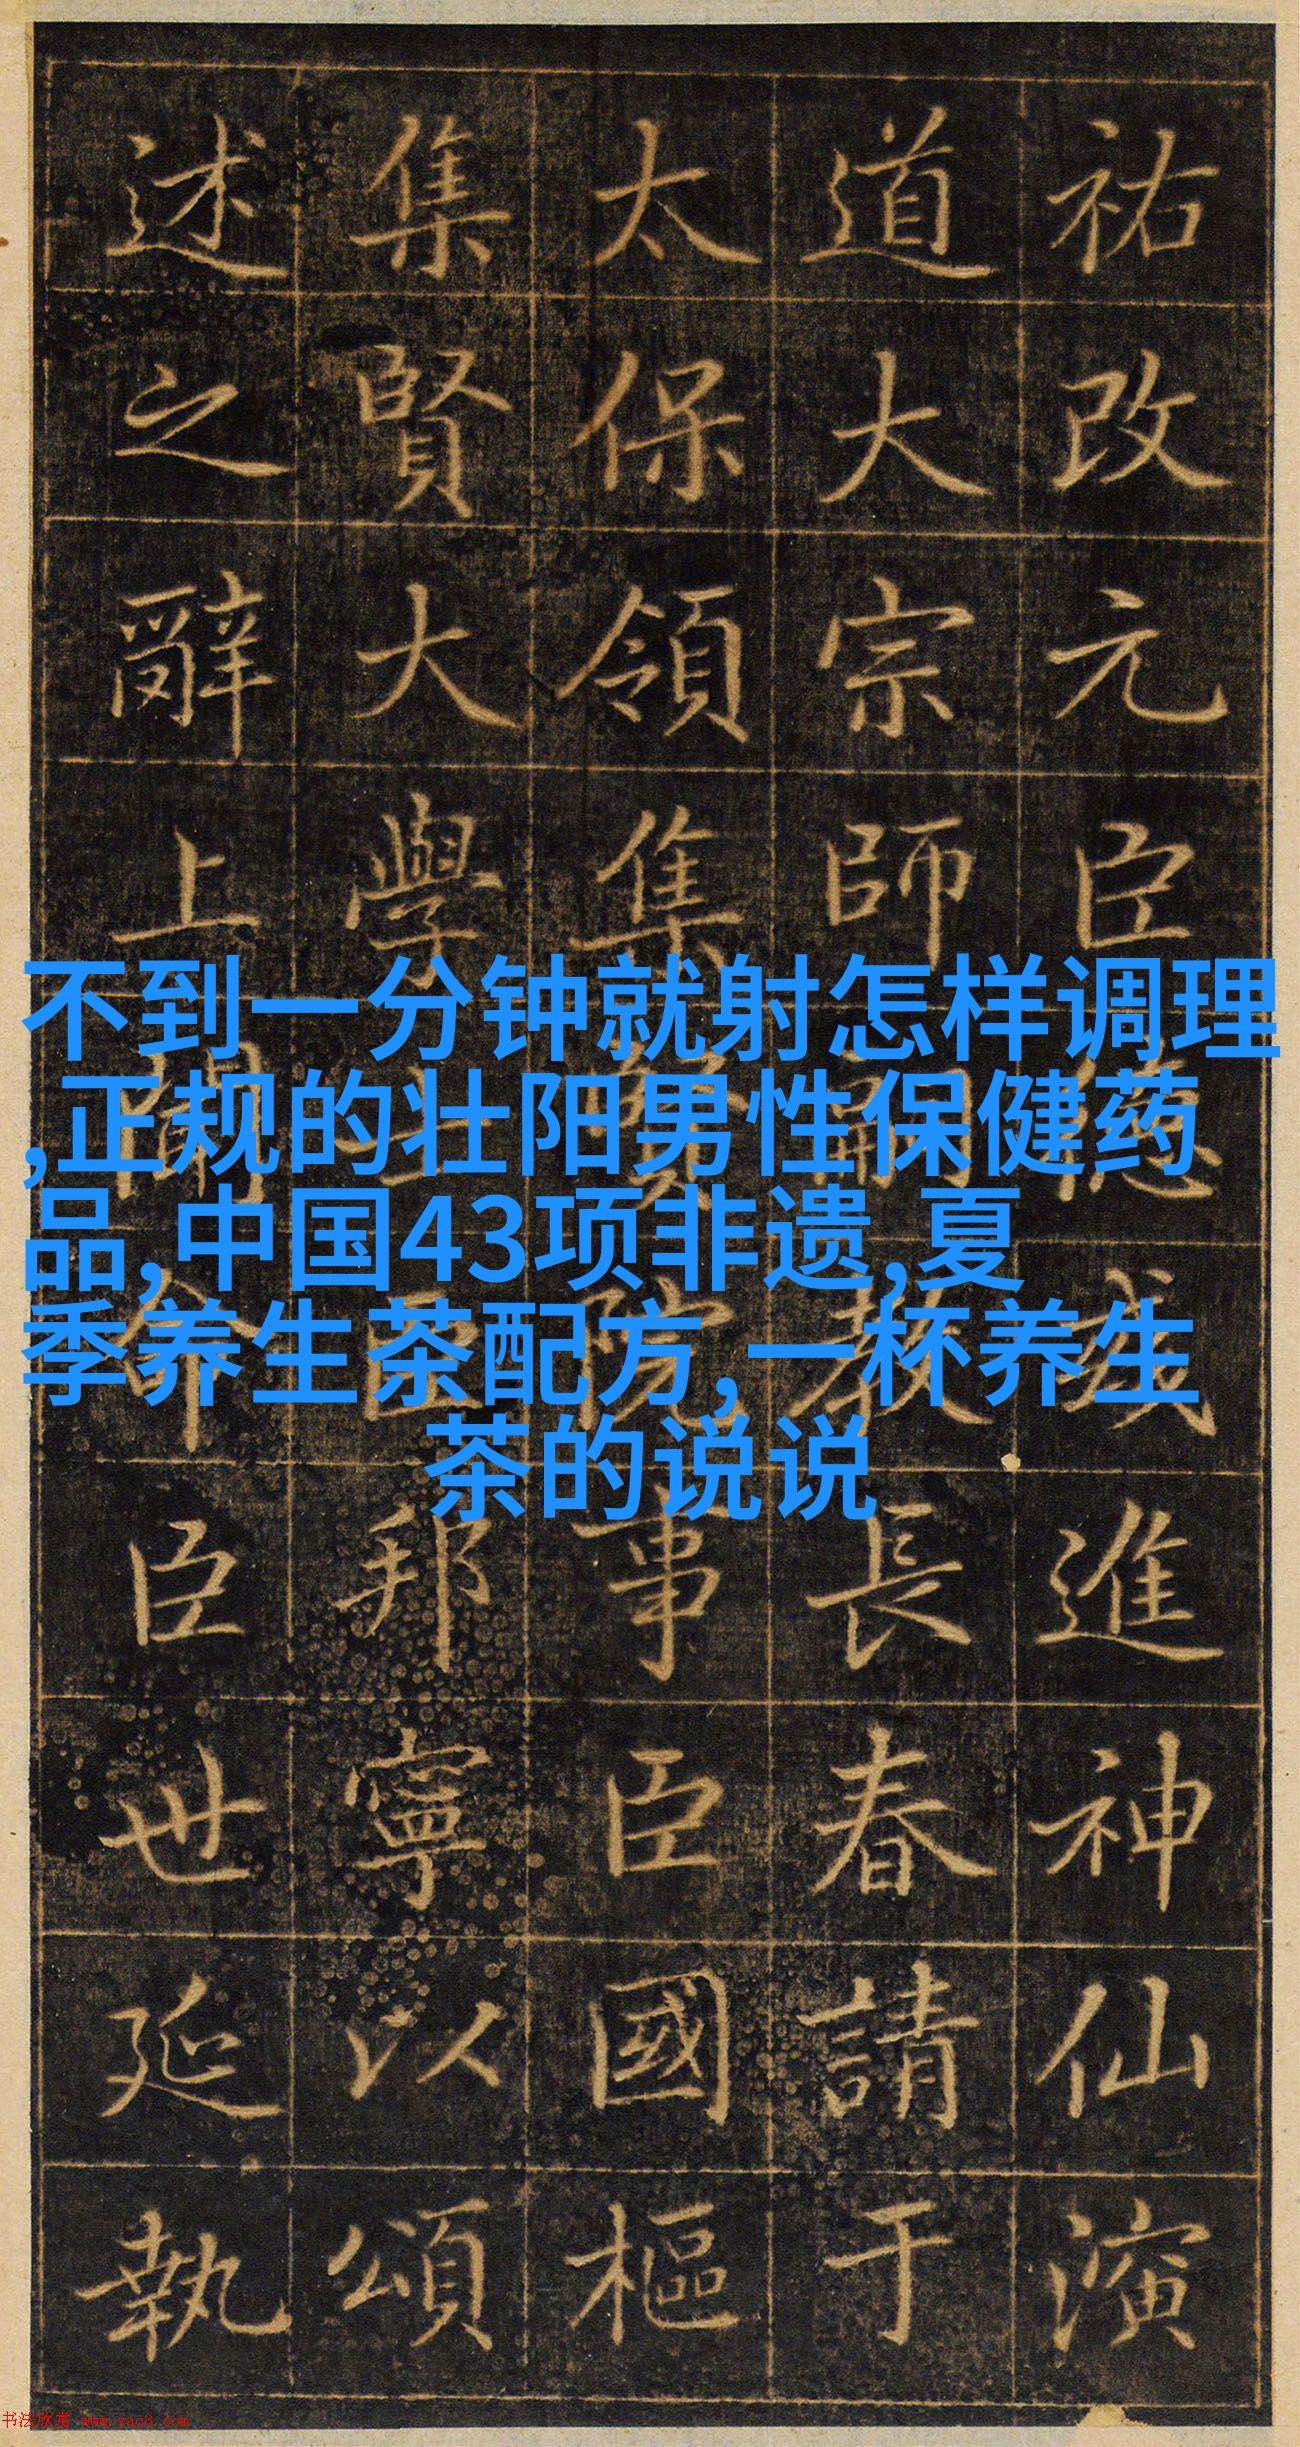 祐改元臣德進神仙演
道大宗師教長春請于
太保領集賢院事臣國樞
集賢大學士臣邦寧以頌
述之辭上聞臣世延執
不到一分钟就射怎样调理
,正规的壮阳男性保健药
品,中国43项非遗,夏
季养生茶配方,一杯养生
茶的说说
书法欣赏 www.yac8.com